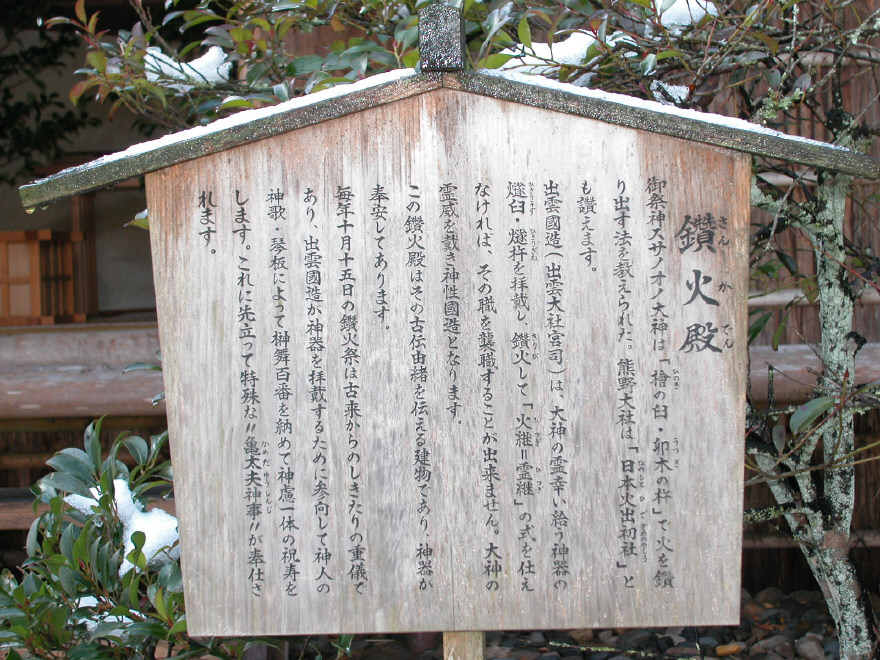 鑽火殿
さんかでん
御祭神スサノオノ大神は「檜の臼・卯木の杵」で火を鑽
り出す法を教えられた。熊野大社は「日本火出初社」と
も讃えます。
出雲國造(出雲大社宮司)は、大神の霊幸い給う神器の
燧臼・燧杵を拝戴し、鑽火して「火継=霊継」の式を仕え
なければ、その職を襲職することが出来ません。大神の
霊威を戴き神性國造となります。
この鑽火殿はその古伝由緒を伝える建物であり、神器が
奉安してあります。
毎年十月十五日の鑽火祭は古来からのしきたりの重儀で
あり、出雲國造が神器を拝戴するために参向して神人の
神歌・琴板によって榊舞百番を納めて神慮一体の祝寿を
します。これに先立って特殊な"亀太夫神事"が奉仕さ
れます。